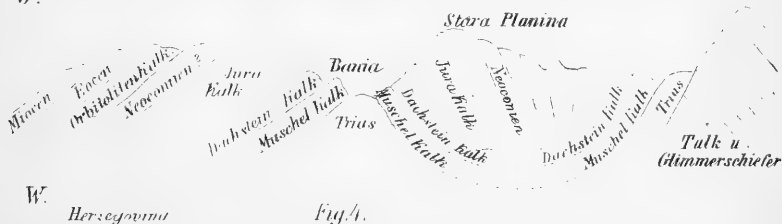 Stara Planina
Miocen
Eocen
Orbitolitenkalk
Neocomien?
Jura
Kalk
Dachstein Kalk
Muschel Kalk
Bania
Trias
Muschel Kalk
Dachstein Kalk
Jura Kalk
Neocomien
Dachstein Kalk
Muschel Kalk
Trias
Talk u
Glimmerschiefer
W.
Herzegovina
Fig. 4.